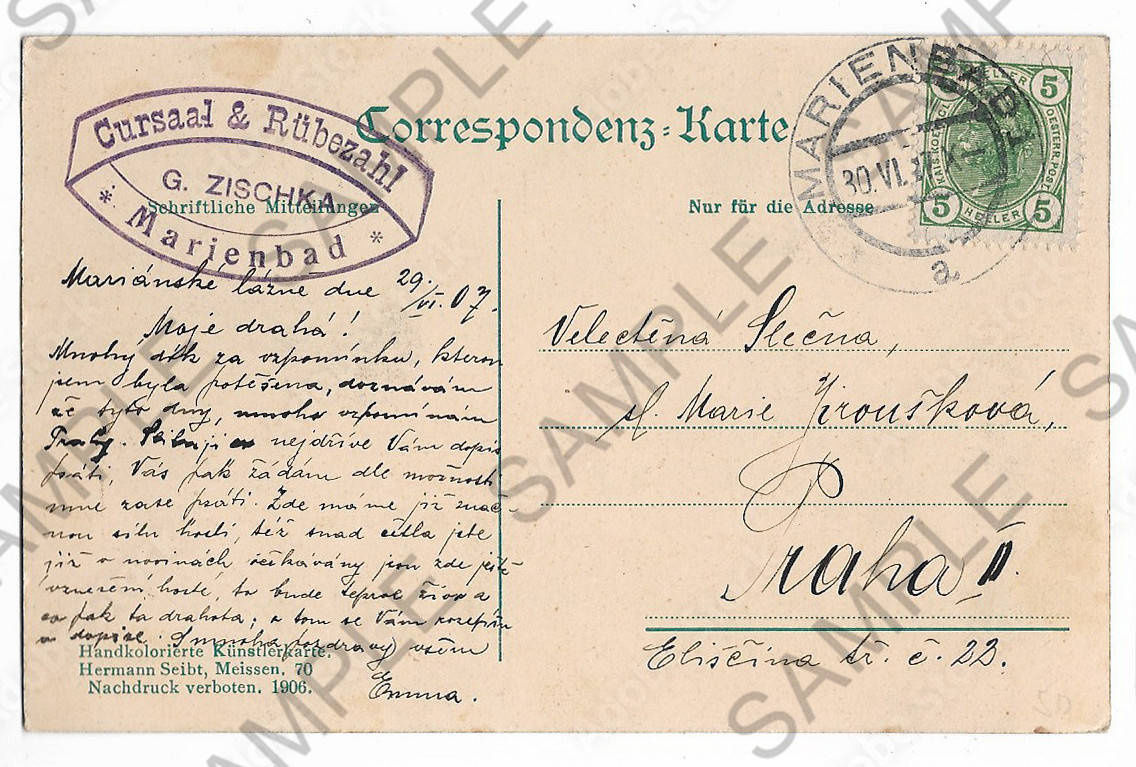 Cursaal & Rübezahl
G. ZISCHKA
* Marienbad *
Correspondenz-Karte
Schriftliche Mitteilungen
Nur für die Adresse
MARIENBAD
30.VI.
a
5 HELLER 5
5 HELLER 5
OESTERR. POST
Mariánské lázně dne 29./VI. 07.
Moje drahá!
Mnohý dík za vzpomínku, kterou
jsem byla potěšena, doznávám
že tyto dny, mnoho vzpomínám
Prahy. nejdříve Vám dopis
psáti, Vás pak žádám dle možnosti
mně zase psáti. Zde máme již znač-
nou sílu hostí, též snad četla jste
již v novinách očekávány jsou zde ještě
vznešení hosté, to bude teprve živo a
co pak ta drahota; o tom se Vám rozepíši
v dopise. S mnoha pozdravy všem
Emma.
Velectěná Slečna,
sl. Marie Kroušková,
Praha II.
Eliščina tř. č. 22.
Handkolorierte Künstlerkarte.
Hermann Seibt, Meissen, 70
Nachdruck verboten. 1906.
SAMPLE